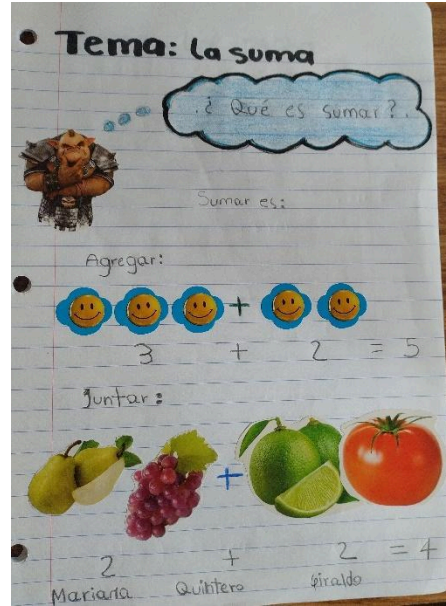 Tema: la suma
¿Qué es sumar?
Sumar es:
Agregar:
+
3 + 2 = 5
Juntar:
+
2 + 2 = 4
Mariana Quintero Giraldo